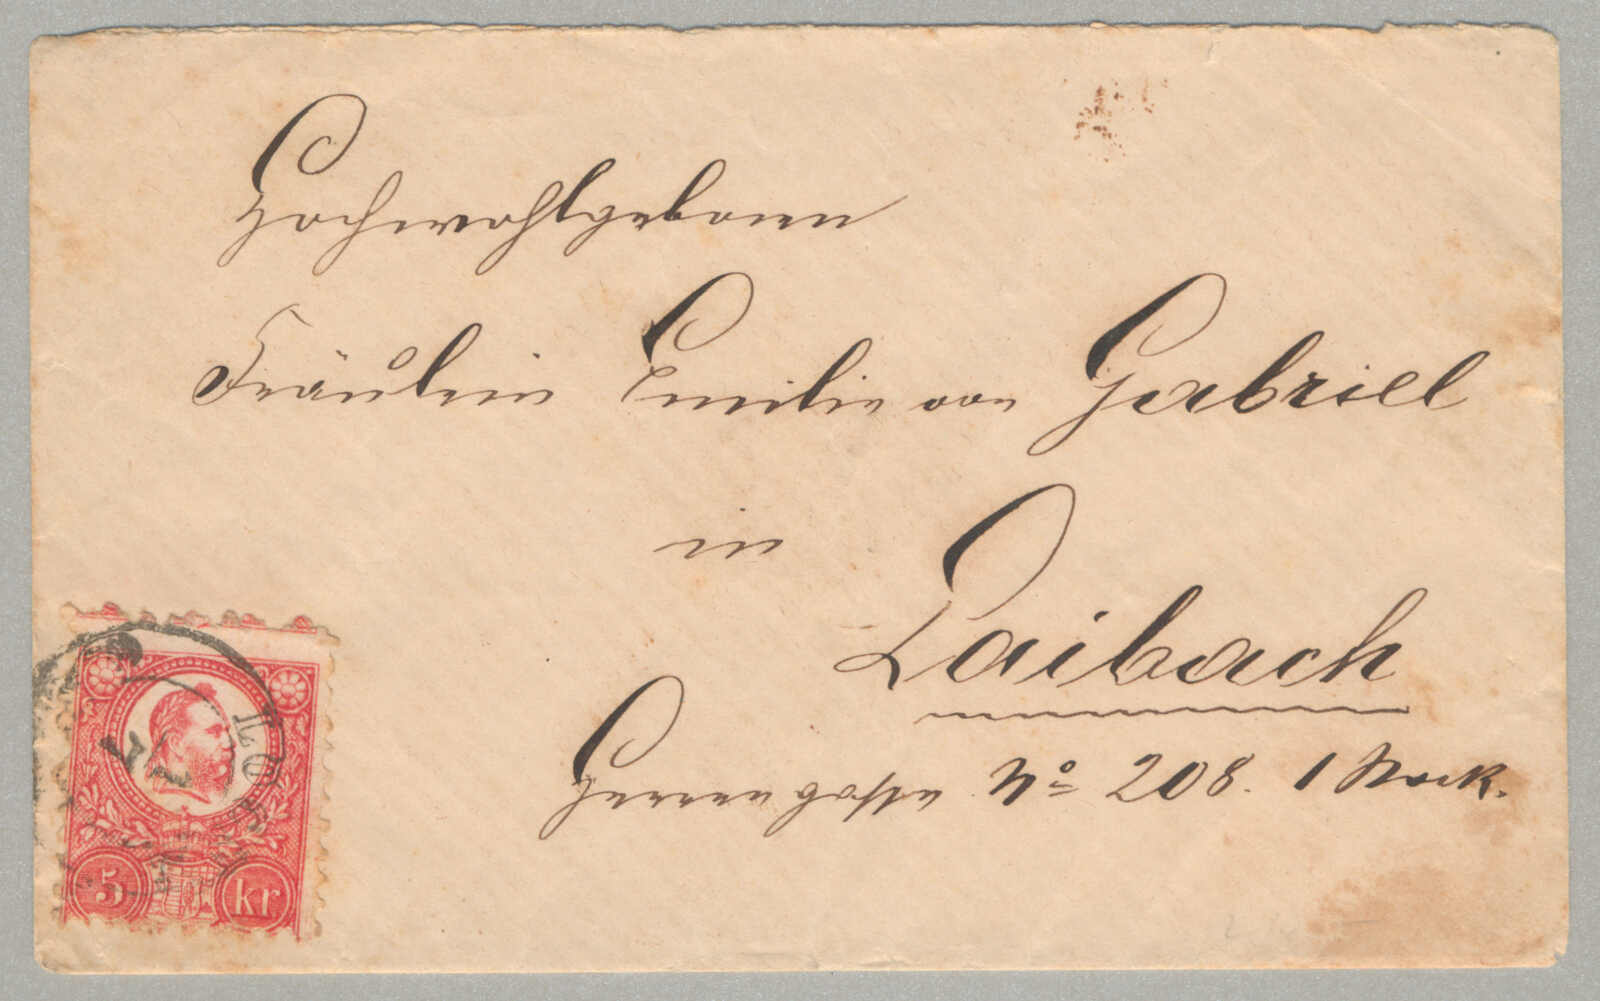 Hochwohlgeboren
Fräulein Emilie von Gabriel
in
Laibach
Herrengasse No 208. 1 Stock.
5 kr